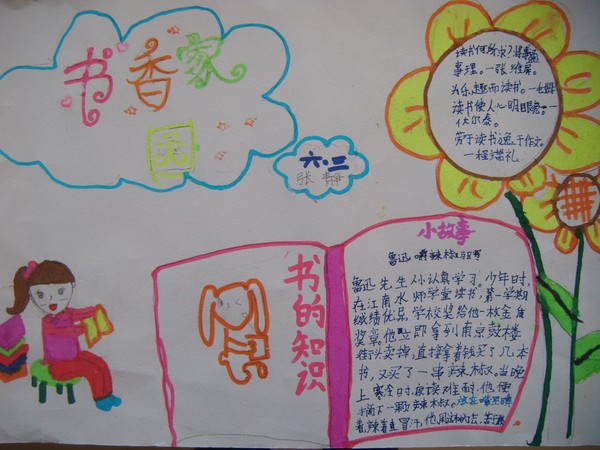 书香家
园
六.三
张静
读书何所求?将以通
事理。一张维屏。
为乐趣而读书。一
读书使人心明眼亮。一
伏尔泰。
劳于读书逸于作文。
一程端礼
书的知识
小故事
鲁迅嚼辣椒
鲁迅先生从小认真学习。少年时,
在江南水师学堂读书,第一学期
成绩优异,学校奖给他一枚金质
奖章,他立即拿到南京鼓楼
街头卖掉,直接拿着钱买了几本
书,又买了一串辣椒,当晚
上寒冷时,夜读难耐,他便
摘下一颗辣椒,
着,辣着直冒汗,他用这种办法,